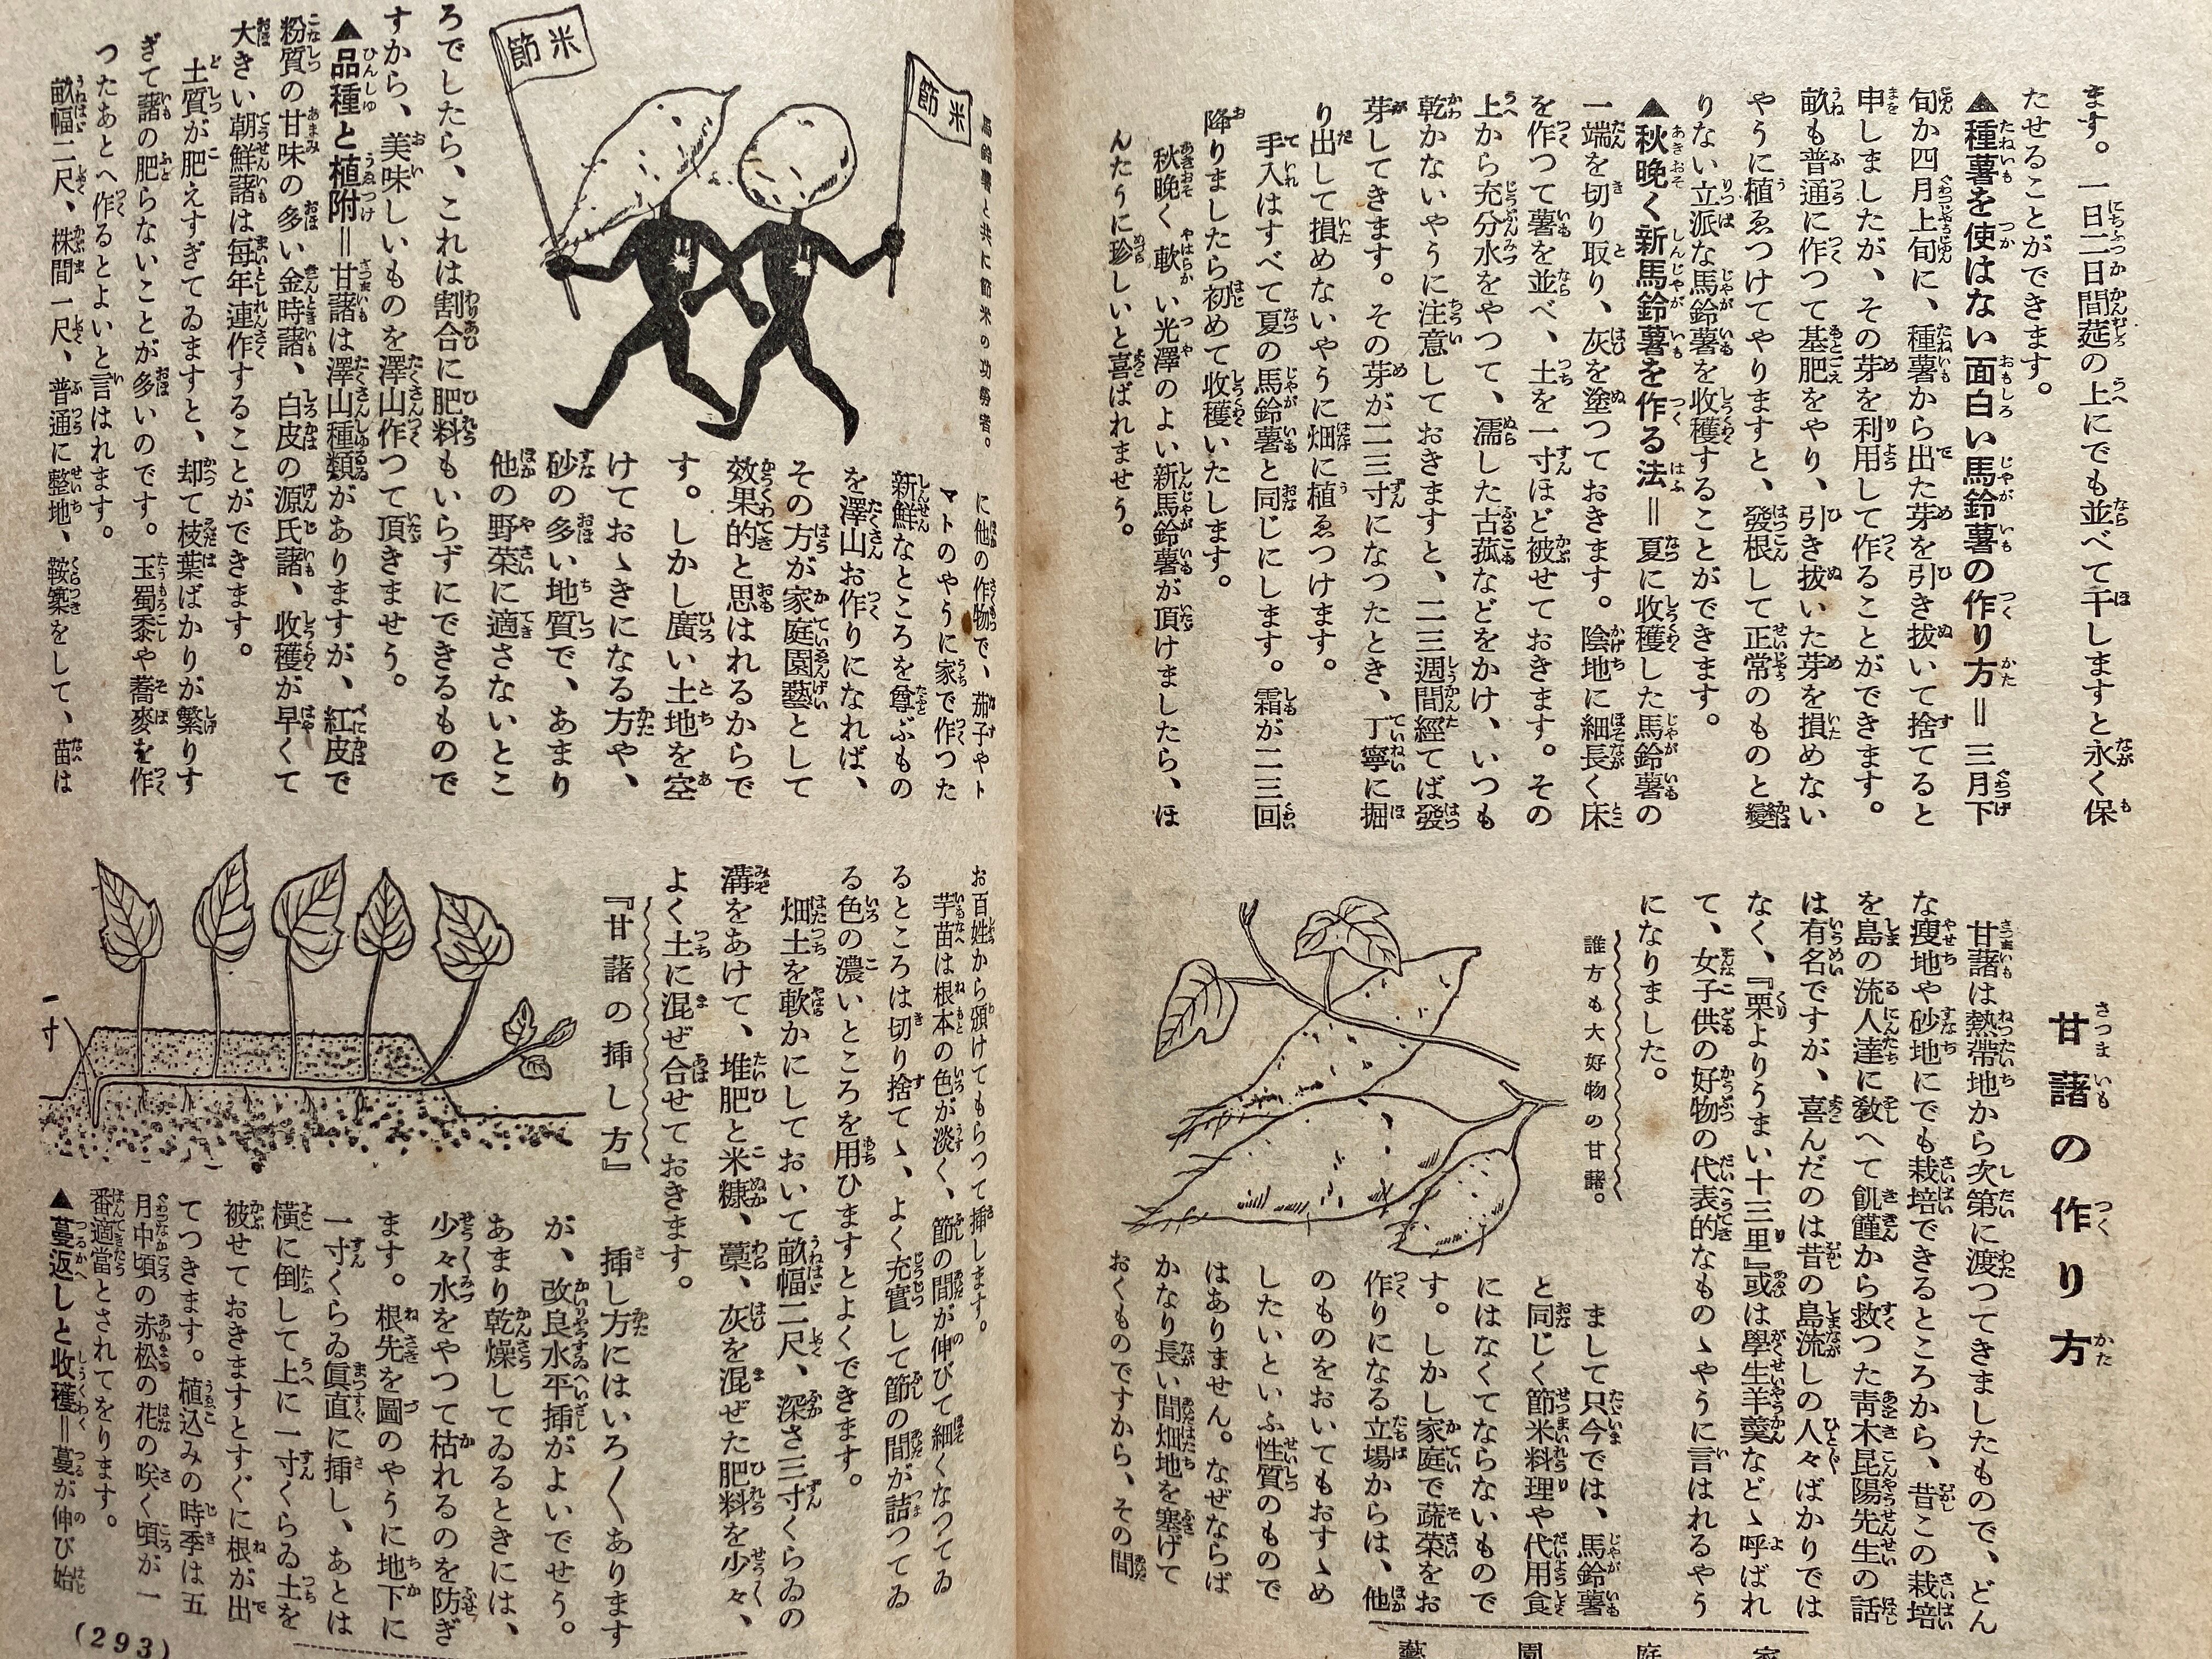 ます。一日二日間莚の上にでも並べて干しますと永く保
たせることができます。
▲種薯を使はない面白い馬鈴薯の作り方＝三月下
旬か四月上旬に、種薯から出た芽を引き抜いて捨てると
申しましたが、その芽を利用して作ることができます。
畝も普通に作つて基肥をやり、引き抜いた芽を損めない
やうに植ゑつけてやりますと、發根して正常のものと變
りない立派な馬鈴薯を收穫することができます。
▲秋晩く新馬鈴薯を作る法＝夏に收穫した馬鈴薯の
一端を切り取り、灰を塗つておきます。陰地に細長く床
を作つて薯を並べ、土を一寸ほど被せておきます。その
上から充分水をやつて、濡した古菰などをかけ、いつも
乾かないやうに注意しておきますと、二三週間經てば發
芽してきます。その芽が二三寸になつたとき、丁寧に掘
り出して損めないやうに畑に植ゑつけます。
手入はすべて夏の馬鈴薯と同じにします。霜が二三回
降りましたら初めて收穫いたします。
秋晩く軟い光澤のよい新馬鈴薯が頂けましたら、ほ
んたうに珍しいと喜ばれませう。
甘藷の作り方
甘藷は熱帶地から次第に渡つてきましたもので、どん
な瘦地や砂地にでも栽培できるところから、昔この栽培
を島の流人達に敎へて飢饉から救つた靑木昆陽先生の話
は有名ですが、喜んだのは昔の島流しの人々ばかりでは
なく、『栗よりうまい十三里』或は學生羊羹などゝ呼ばれ
て、女子供の好物の代表的なものゝやうに言はれるやう
になりました。
誰方も大好物の甘藷。
まして只今では、馬鈴薯
と同じく節米料理や代用食
にはなくてならないもので
す。しかし家庭で蔬菜をお
作りになる立場からは、他
のものをおいてもおすゝめ
したいといふ性質のもので
はありません。なぜならば
かなり長い間畑地を塞げて
おくものですから、その間
家庭園藝
馬鈴薯と共に節米の功勞者。
節米
節米
に他の作物で、茄子やト
マトのやうに家で作つた
新鮮なところを尊ぶもの
を澤山お作りになれば、
その方が家庭園藝として
效果的と思はれるからで
す。しかし廣い土地を空
けておゝきになる方や、
砂の多い地質で、あまり
他の野菜に適さないとこ
ろでしたら、これは割合に肥料もいらずにできるもので
すから、美味しいものを澤山作つて頂きませう。
▲品種と植附＝甘藷は澤山種類がありますが、紅皮で
粉質の甘味の多い金時藷、白皮の源氏藷、收穫が早くて
大きい朝鮮藷は每年連作することができます。
土質が肥えすぎてゐますと、却て枝葉ばかりが繁りす
ぎて藷の肥らないことが多いのです。玉蜀黍や蕎麥を作
つたあとへ作るとよいと言はれます。
畝幅二尺、株間一尺、普通に整地、鞍築をして、苗は
お百姓から頒けてもらつて挿します。
芋苗は根本の色が淡く、節の間が伸びて細くなつてゐ
るところは切り捨てゝ、よく充實して節の間が詰つてゐ
る色の濃いところを用ひますとよくできます。
畑土を軟かにしておいて畝幅二尺、深さ三寸くらゐの
溝をあけて、堆肥と米糠、藁、灰を混ぜた肥料を少々、
よく土に混ぜ合せておきます。
『甘藷の挿し方』
一寸
挿し方にはいろ〱あります
が、改良水平挿がよいでせう。
あまり乾燥してゐるときには、
少々水をやつて枯れるのを防ぎ
ます。根先を圖のやうに地下に
一寸くらゐ眞直に挿し、あとは
橫に倒して上に一寸くらゐ土を
被せておきますとすぐに根が出
てつきます。植込みの時季は五
月中頃の赤松の花の咲く頃が一
番適當とされてをります。
▲蔓返しと收穫＝蔓が伸び始
(293)